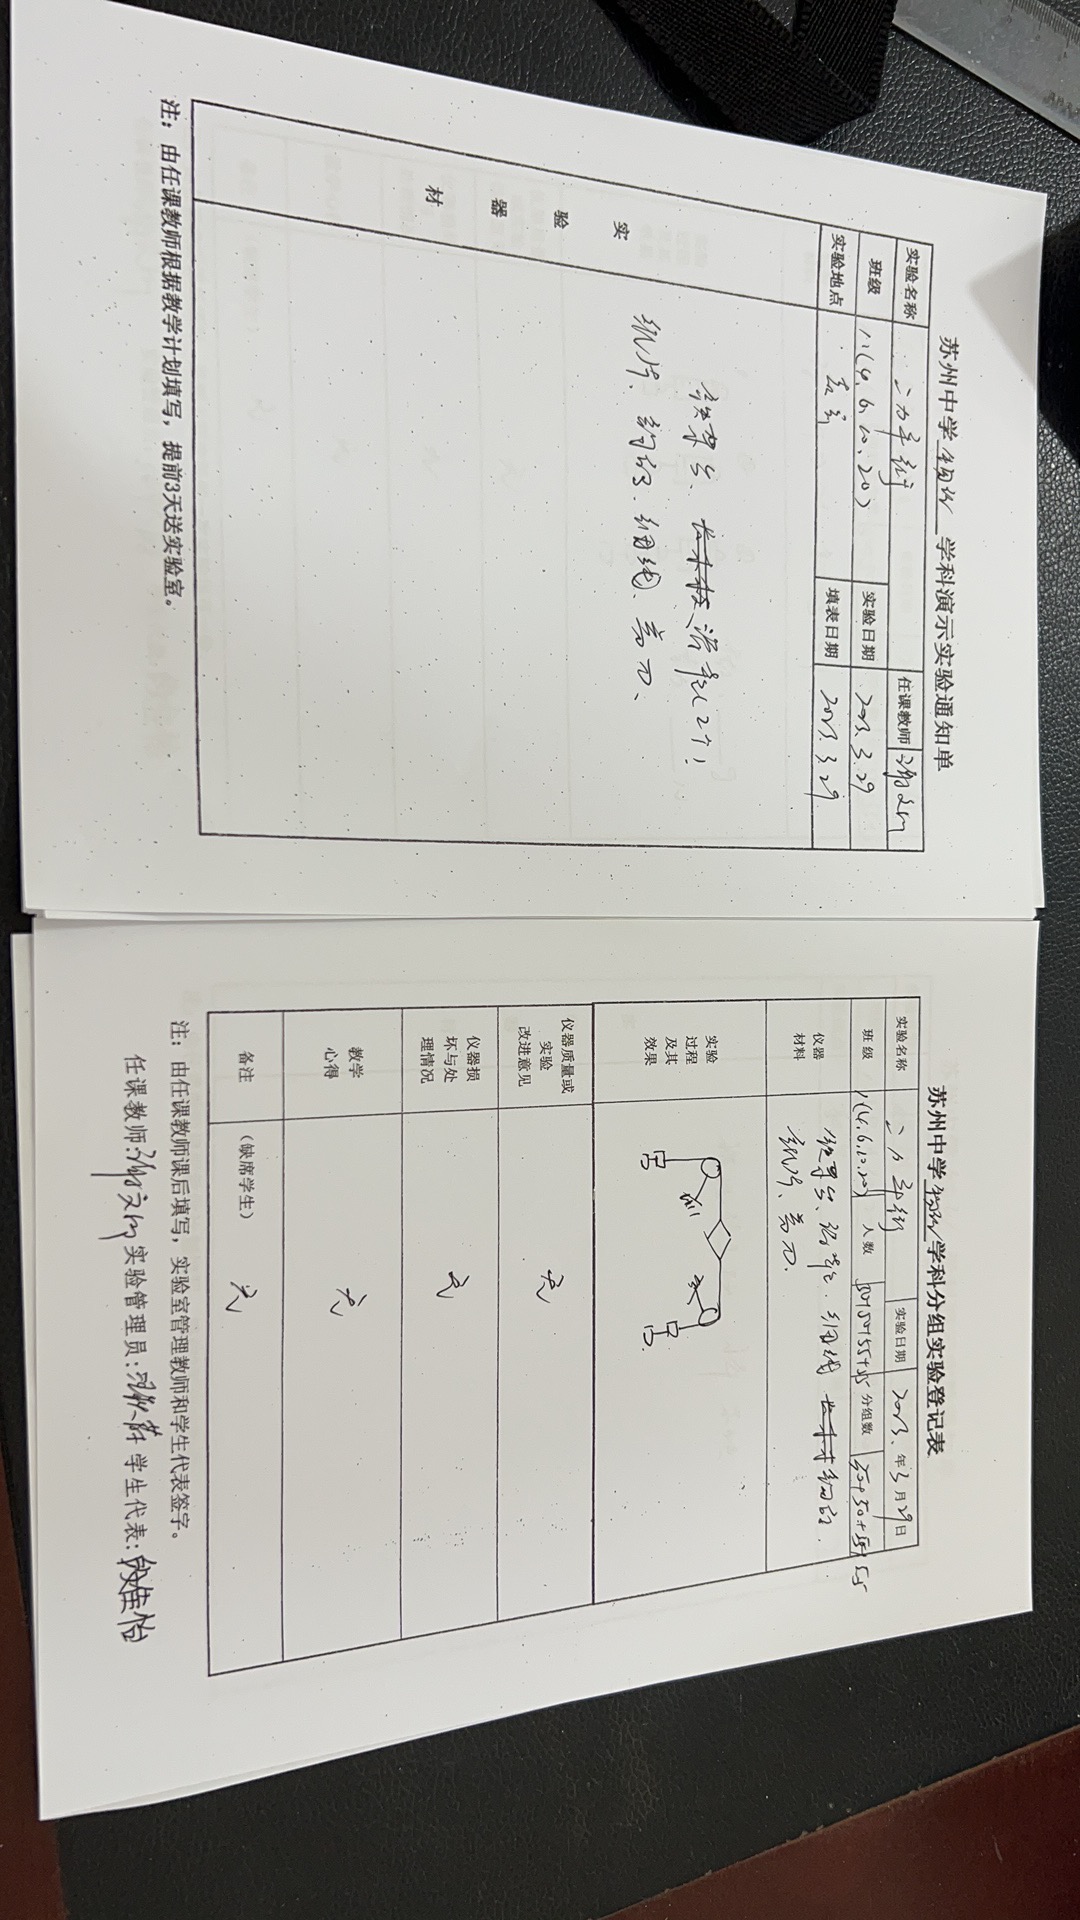 苏州中学 物理 学科演示实验通知单
实验名称 二力平衡 任课教师
班级 八(4.6.10.20) 实验日期 2023.3.29
实验地点 填表日期 2023.3.29
实验器材
铁架台、长木板、滑轮(2个)
纸片、钩码、细线、剪刀、
注：由任课教师根据教学计划填写，提前3天送实验室。
苏州中学 物理 学科分组实验登记表
实验名称 二力平衡 实验日期 2023.年3月29日
班级 人数 分组数
仪器材料 铁架台、滑轮、细线 钩码、
纸片、剪刀.
实验过程及其效果
仪器质量或实验改进意见 无
仪器损坏与处理情况 无
教学心得 无
备注 (缺席学生) 无
注：由任课教师课后填写，实验室管理教师和学生代表签字。
任课教师: 实验管理员: 学生代表:段佳怡